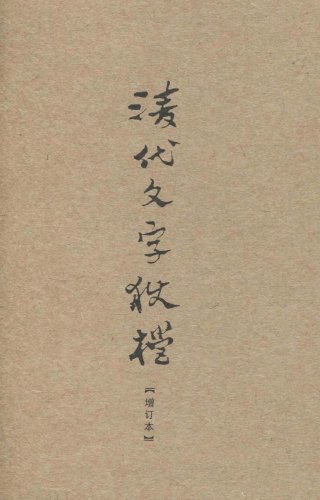 清代文字狱档
【增订本】